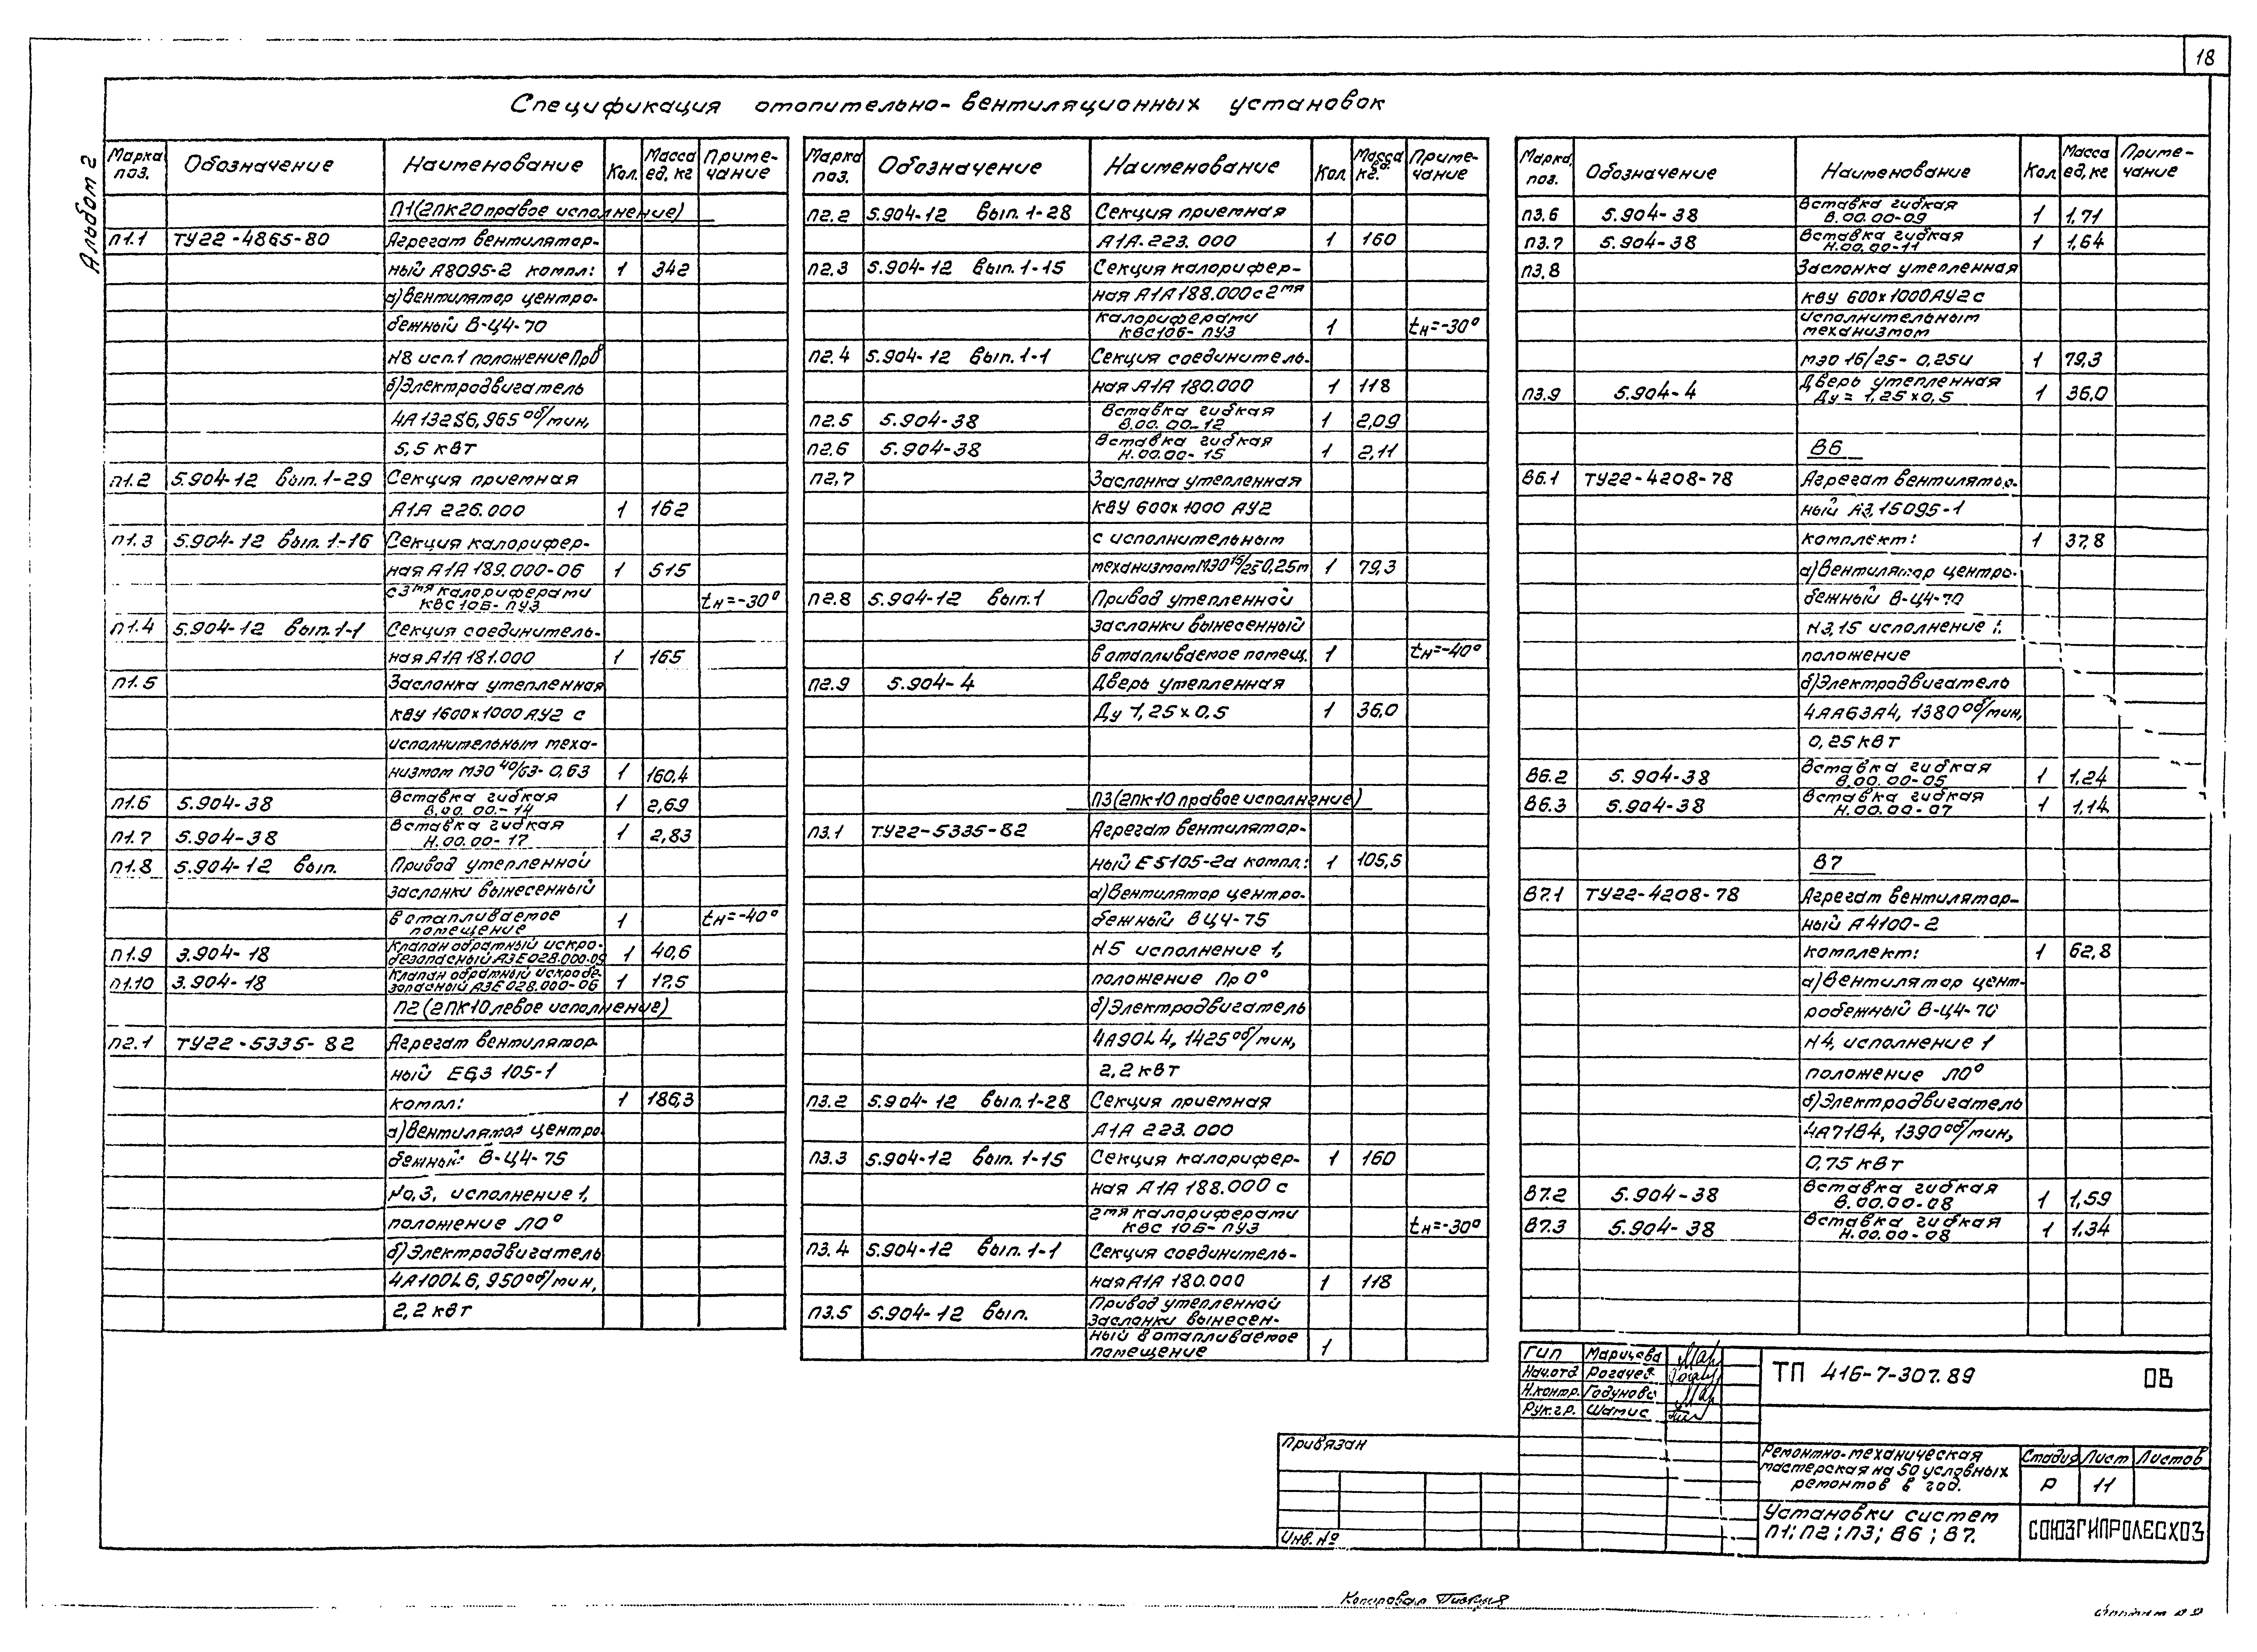 18
Альбом 2
Спецификация отопительно-вентиляционных установок
Марка поз. Обозначение Наименование Кол. Масса ед. кг Приме-чание
П1(2ПК20 правое исполнение)
П1.1 ТУ22-4865-80 Агрегат вентилятор-
ный А8095-2 компл: 1 342
а)Вентилятор центро-
бежный В-Ц4-70
N8 исп.1 положение Пр0°
б)Электродвигатель
4А132S6, 965 об/мин,
5,5 квт
П1.2 5.904-12 вып. 1-29 Секция приемная
А1А 226.000 1 162
П1.3 5.904-12 вып. 1-16 Секция калорифер-
ная А1А 189.000-06 1 515
с 3мя калориферами
КВС10Б-ПУ3 tн=-30°
П1.4 5.904-12 вып. 1-1 Секция соединитель-
ная А1А 181.000 1 165
П1.5 Заслонка утепленная
КВУ 1600х1000 АУ2 с
исполнительным меха-
низмом МЭО 40/63-0,63 1 160,4
П1.6 5.904-38 Вставка гибкая
В.00.00-14 1 2,69
П1.7 5.904-38 Вставка гибкая
Н.00.00-17 1 2,83
П1.8 5.904-12 вып. Привод утепленной
заслонки вынесенный
в отапливаемое
помещение 1 tн=-40°
П1.9 3.904-18 Клапан обратный искро-
безопасный АЗЕ028.000-09 1 40,6
П1.10 3.904-18 Клапан обратный искробе-
зопасный АЗЕ028.000-06 1 17,5
П2(2ПК10 левое исполнение)
П2.1 ТУ22-5335-82 Агрегат вентилятор-
ный Е6,3 105-1
компл: 1 186,3
а)Вентилятор центро-
бежный В-Ц4-75
исполнение 1,
положение Л0°
б)Электродвигатель
4А100L6, 950 об/мин,
2,2 квт
Марка поз. Обозначение Наименование Кол Масса ед. кг. Приме-чание
П2.2 5.904-12 вып. 1-28 Секция приемная
А1А.223.000 1 160
П2.3 5.904-12 вып. 1-15 Секция калорифер-
ная А1А188.000 с 2мя
калориферами
КВС10Б-ПУ3 1 tн=-30°
П2.4 5.904-12 вып. 1-1 Секция соединитель-
ная А1А 180.000 1 118
П2.5 5.904-38 Вставка гибкая
В.00.00-12 1 2,09
П2.6 5.904-38 Вставка гибкая
Н.00.00-15 1 2,11
П2.7 Заслонка утепленная
КВУ 600х1000 АУ2
с исполнительным
механизмом МЭО 16/25-0,25м 1 79,3
П2.8 5.904-12 вып.1 Привод утепленной
заслонки вынесенный
в отапливаемое помещ. 1 tн=-40°
П2.9 5.904-4 Дверь утепленная
Ду 1,25х0.5 1 36,0
П3(2ПК10 правое исполнение)
П3.1 ТУ22-5335-82 Агрегат вентилятор-
ный Е5105-2а компл: 1 105,5
а)Вентилятор центро-
бежный ВЦ4-75
N5 исполнение 1,
положение Пр0°
б)Электродвигатель
4А90L4, 1425 об/мин,
2,2 квт
П3.2 5.904-12 вып. 1-28 Секция приемная
А1А 223.000
П3.3 5.904-12 вып. 1-15 Секция калорифер- 1 160
ная А1А 188.000 с
2мя калориферами
КВС 10Б-ПУ3 tн=-30°
П3.4 5.904-12 вып. 1-1 Секция соединитель-
ная А1А 180.000 1 118
П3.5 5.904-12 вып. Привод утепленной
заслонки вынесен-
ный в отапливаемое
помещение 1
Марка поз. Обозначение Наименование Кол Масса ед, кг Приме-чание
П3.6 5.904-38 Вставка гибкая
В.00.00-09 1 1,71
П3.7 5.904-38 Вставка гибкая
Н.00.00-11 1 1,64
П3.8 Заслонка утепленная
КВУ 600х1000АУ2 с
исполнительным
механизмом
МЭО 16/25-0,25И 1 79,3
П3.9 5.904-4 Дверь утепленная
Ду=1,25х0,5 1 36,0
В6
В6.1 ТУ22-4208-78 Агрегат вентилятор-
ный А3,15095-1
комплект: 1 37,8
а)Вентилятор центро-
бежный В-Ц4-70
N3,15 исполнение 1.
положение
б)Электродвигатель
4АА63А4, 1380 об/мин,
0,25 квт
В6.2 5.904-38 Вставка гибкая
В.00.00-05 1 1,24
В6.3 5.904-38 Вставка гибкая
Н.00.00-07 1 1,14
В7
В7.1 ТУ22-4208-78 Агрегат вентилятор-
ный А4100-2
комплект: 1 62,8
а)Вентилятор цент-
робежный В-Ц4-70
N4, исполнение 1
положение Л0°
б)Электродвигатель
4А71В4, 1390 об/мин,
0,75 квт
В7.2 5.904-38 Вставка гибкая
В.00.00-08 1 1,59
В7.3 5.904-38 Вставка гибкая
Н.00.00-08 1 1.34
ГИП Маричева
Нач.отд Рогачев
Н.контр. Годунова
Рук.гр. Шамис
ТП 416-7-307.89 ОВ
Привязан
Инв.№
Ремонтно-механическая
мастерская на 50 условных
ремонтов в год.
Стадия Лист Листов
Р 11
Установки систем
П1; П2; П3; В6; В7.
СОЮЗГИПРОЛЕСХОЗ
Копировал
Формат